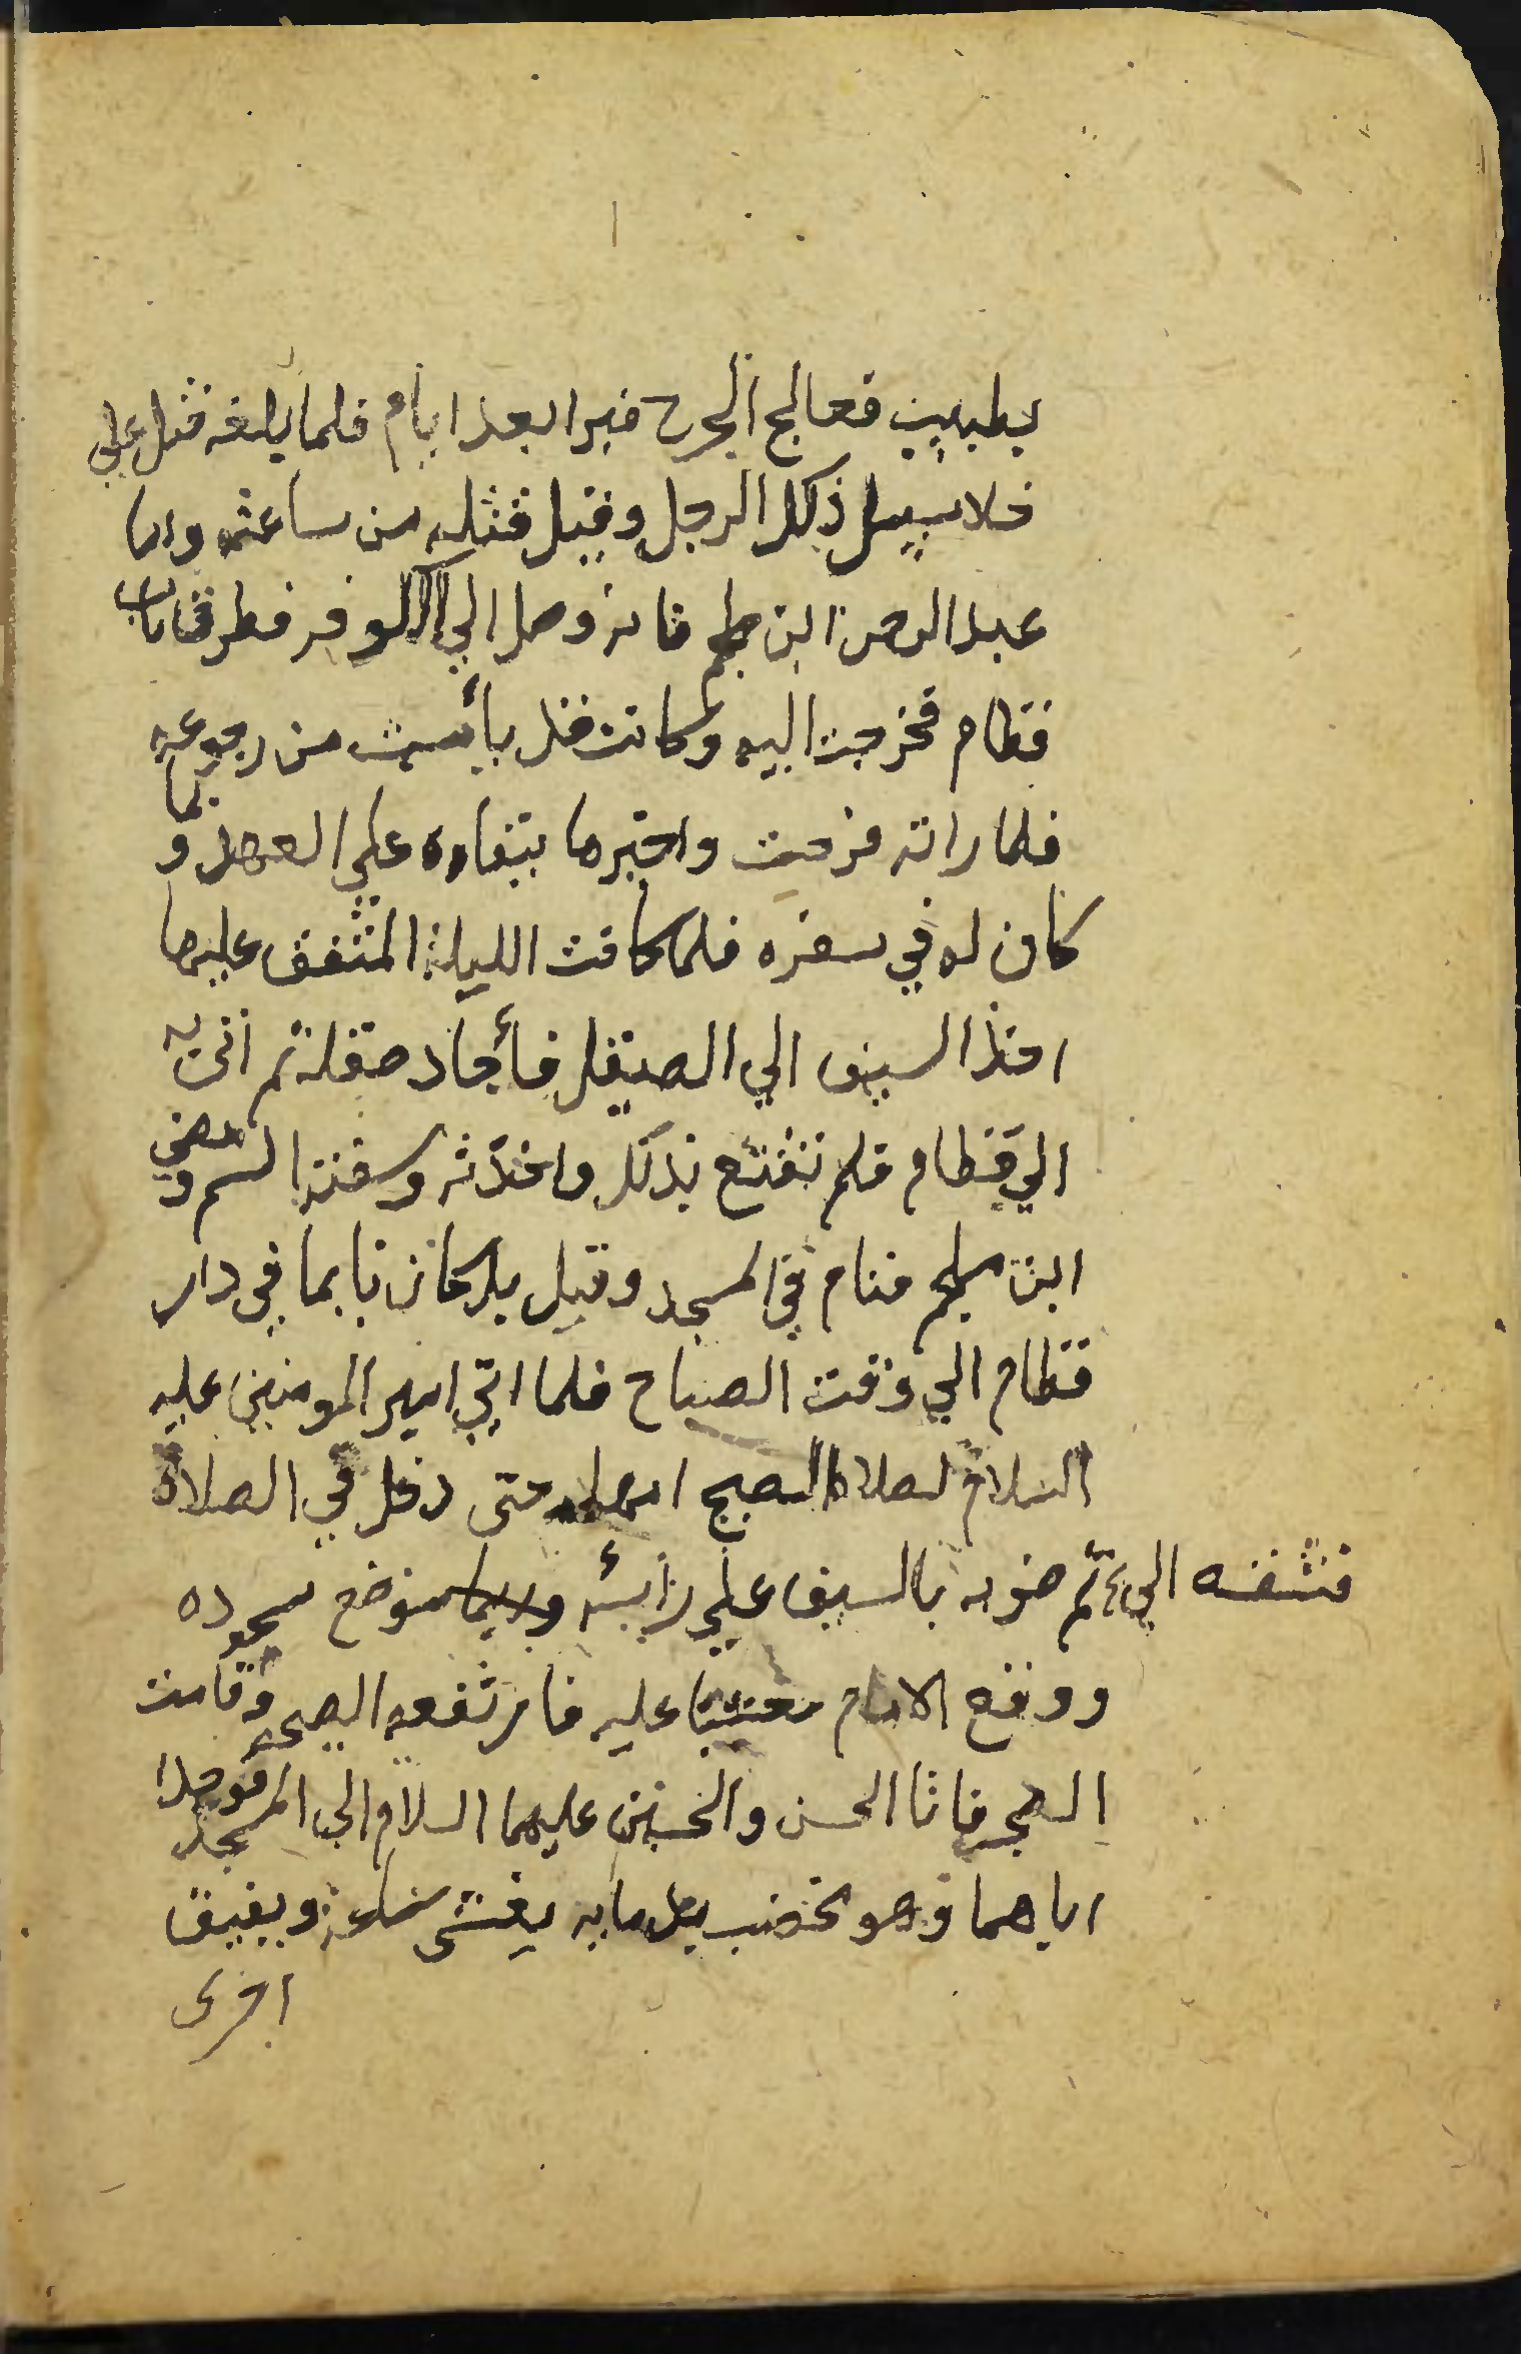 بطبيب فعالج الجرح فبرا بعد ايام فلما بلغه قتل علي
خلا سبيل ذلك الرجل وقيل قتله من ساعته واما
عبد الرحمن ابن ملجم فانه وصل الي الكوفه فطرق باب
قطام فخرجت اليه وكانت قد يأست من رجوعه
فلما راته فرحت واخبرها ببقاوه علي العهد و بما
كان له في سفره فلما كانت الليلة المتفق عليها
اخذ السيف الي الصيقل فأجاد صقله ثم اتى به
الي قطام فلم تقتنع بذلك واخذته وسقته السم ومضى
ابن ملجم فنام في المسجد وقيل بل كان نايما في دار
قطام الي وقت الصباح فلما اتي امير المومنين عليه
السلام لصلاة الصبح امهله حتى دخل في الصلاة
الي ثم ضربه بالسيف علي رأسه موضع سجوده
ووقع الامام مغشيا عليه فارتفعه الصيحه وقامت
الضجه فاتا الحسن والحسين عليهما السلام الي المسجد فوجدا
اباهما وهو مخضب بدمايه يغشى ساعة ويفيق
اخرى